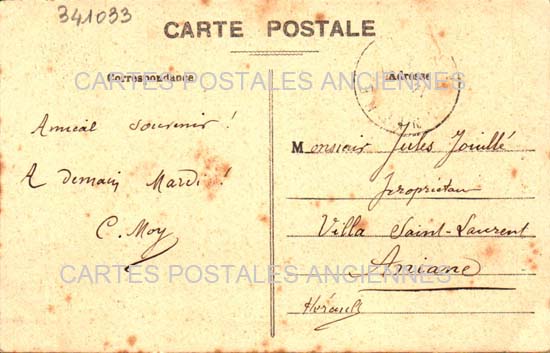 341033
CARTE POSTALE
Correspondance
Adresse
CARTES POSTALES ANCIENNES
Amical souvenir !
A demain Mardi !
C. Moy
Monsieur Jules Jouillé
propriétaire
Villa Saint-Laurent
Aniane
Hérault
CARTES POSTALES ANCIENNES